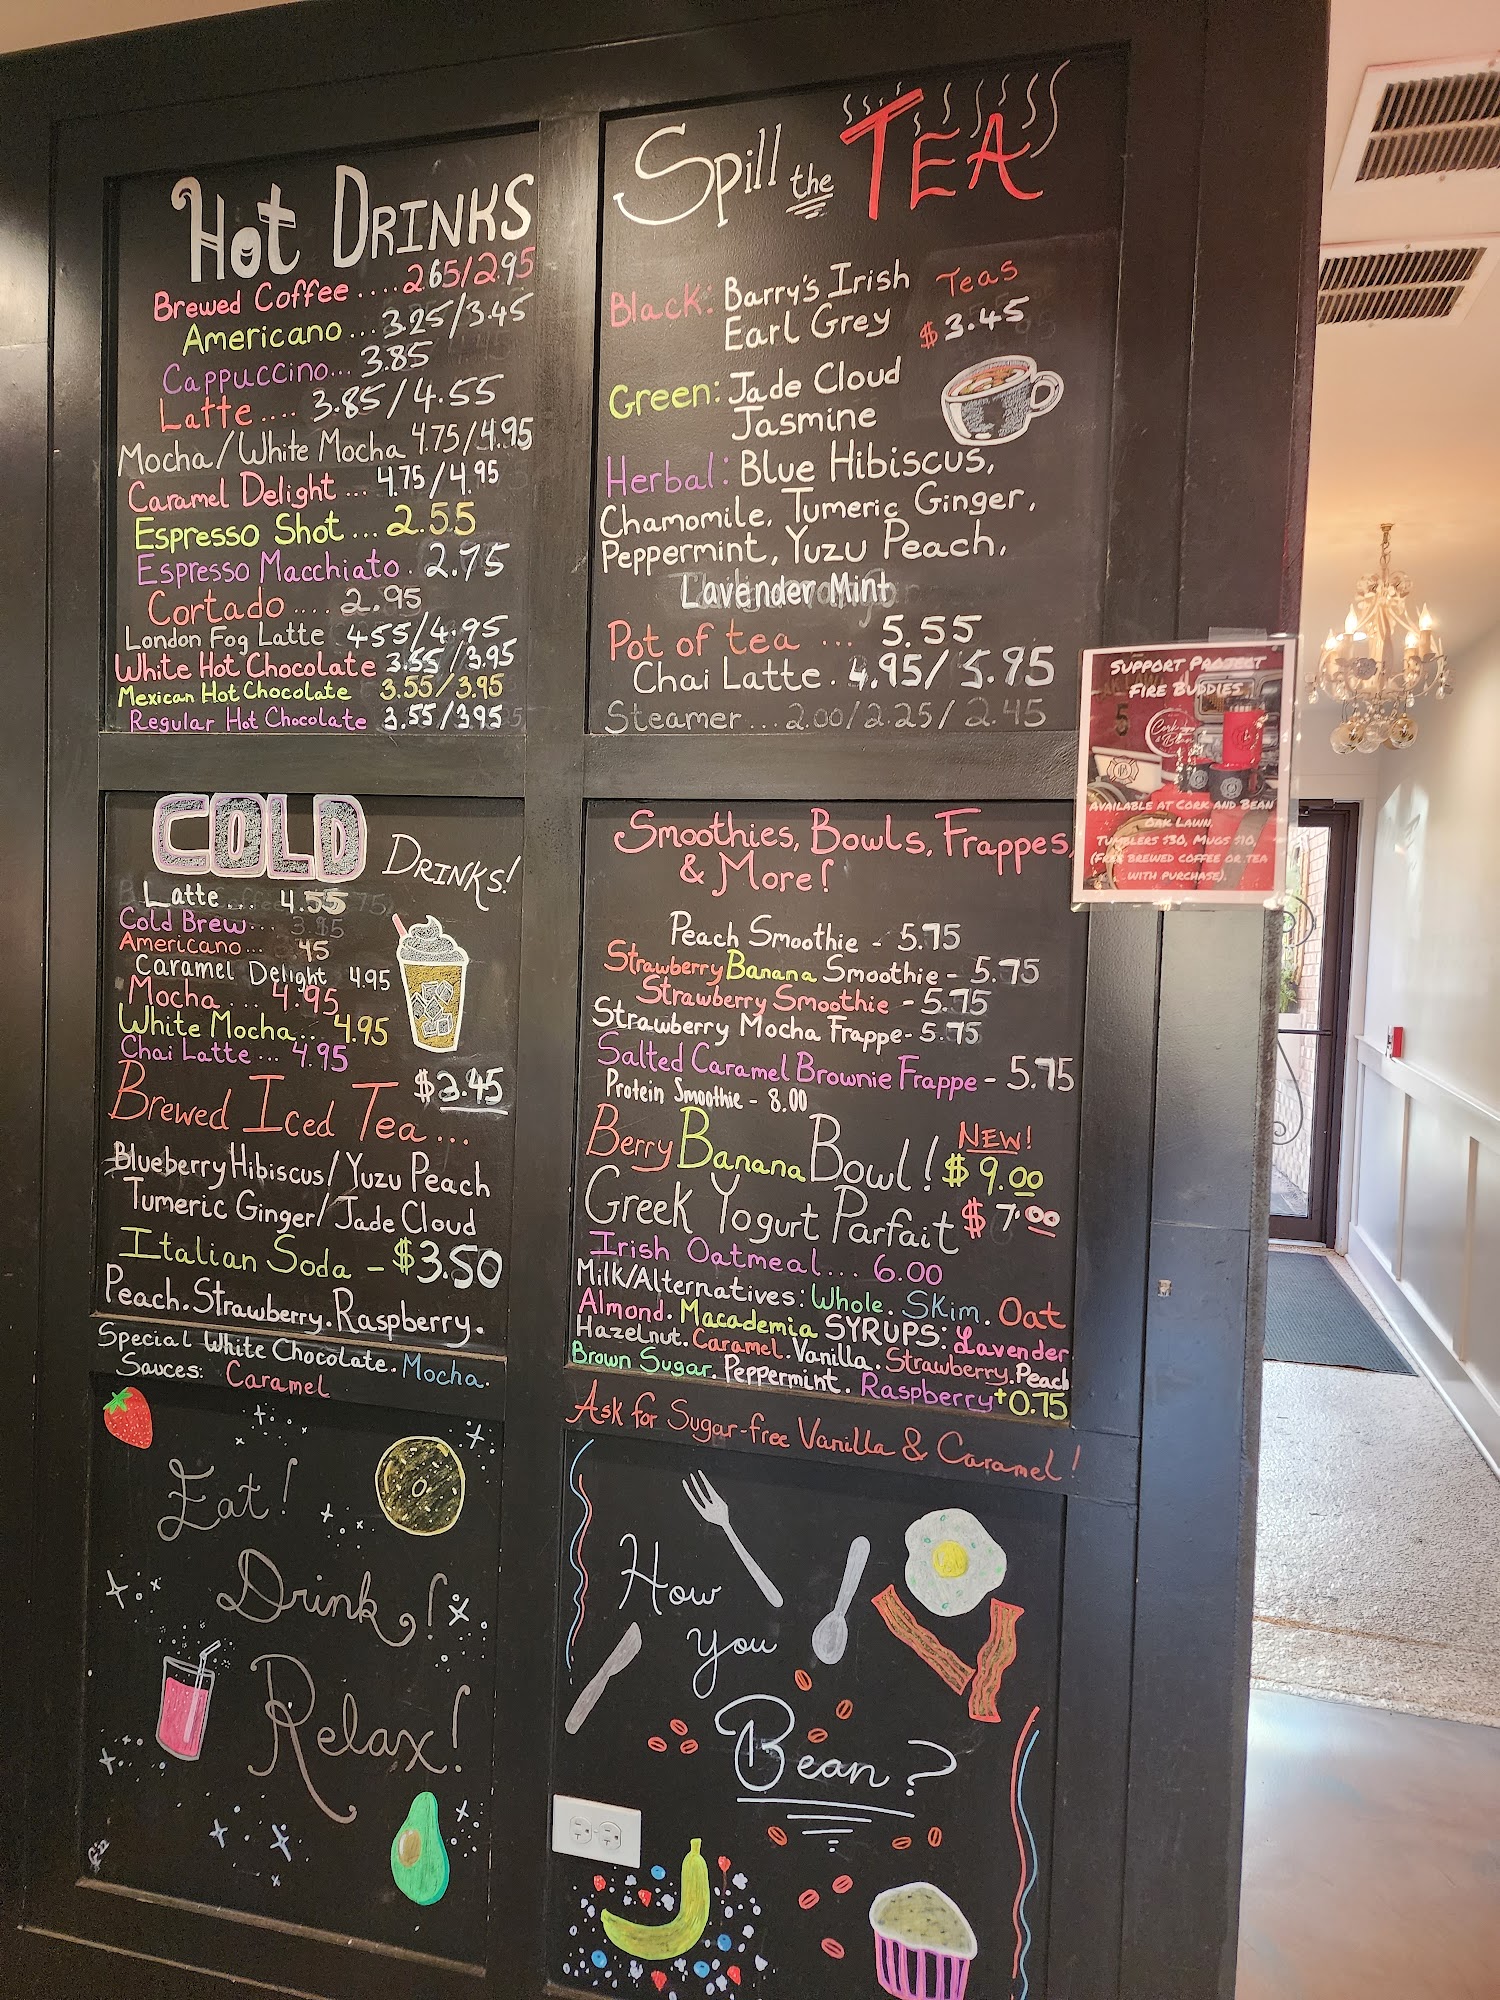 Hot DRINKS
Brewed Coffee ....2.65/2.95
Americano...3.25/3.45
Cappuccino... 3.85
Latte .... 3.85/4.55
Mocha/White Mocha 4.75/4.95
Caramel Delight ... 4.75/4.95
Espresso Shot ... 2.55
Espresso Macchiato . 2.75
Cortado .... 2.95
London Fog Latte 455/4.95
White Hot Chocolate 3.55/3.95
Mexican Hot Chocolate 3.55/3.95
Regular Hot Chocolate 3.55/395
Spill the TEA
Black: Barry's Irish Teas
Earl Grey $3.45
Green: Jade Cloud
Jasmine
Herbal: Blue Hibiscus,
Chamomile, Tumeric Ginger,
Peppermint, Yuzu Peach,
Lavender Mint
Pot of tea ... 5.55
Chai Latte . 4.95/5.95
Steamer ... 2.00/2.25/2.45
SUPPORT PROJECT
FIRE BUDDIES
Cork
& Bean
AVAILABLE AT CORK AND BEAN
OAK LAWN.
TUMBLERS $30, MUGS $10,
(FREE BREWED COFFEE OR TEA
WITH PURCHASE).
COLD DRINKS!
Latte ... 4.55
Cold Brew...
Americano... 45
Caramel Delight 4.95
Mocha ... 4.95
White Mocha... 4.95
Chai Latte ... 4.95
Brewed Iced Tea ... $3.45
Blueberry Hibiscus/Yuzu Peach
Tumeric Ginger/Jade Cloud
Italian Soda - $3.50
Peach.Strawberry.Raspberry.
Special White Chocolate.Mocha.
Sauces: Caramel
Smoothies, Bowls, Frappes,
& More!
Peach Smoothie - 5.75
Strawberry Banana Smoothie - 5.75
Strawberry Smoothie - 5.75
Strawberry Mocha Frappe- 5.75
Salted Caramel Brownie Frappe - 5.75
Protein Smoothie - 8.00
NEW!
Berry Banana Bowl! $9.00
Greek Yogurt Parfait $7.00
Irish Oatmeal... 6.00
Milk/Alternatives: Whole. Skim. Oat
Almond. Macademia SYRUPS: Lavender
Hazelnut. Caramel. Vanilla. Strawberry. Peach
Brown Sugar. Peppermint. Raspberry +0.75
Ask for Sugar-free Vanilla & Caramel!
Eat!
Drink!
Relax!
How
you
Bean?